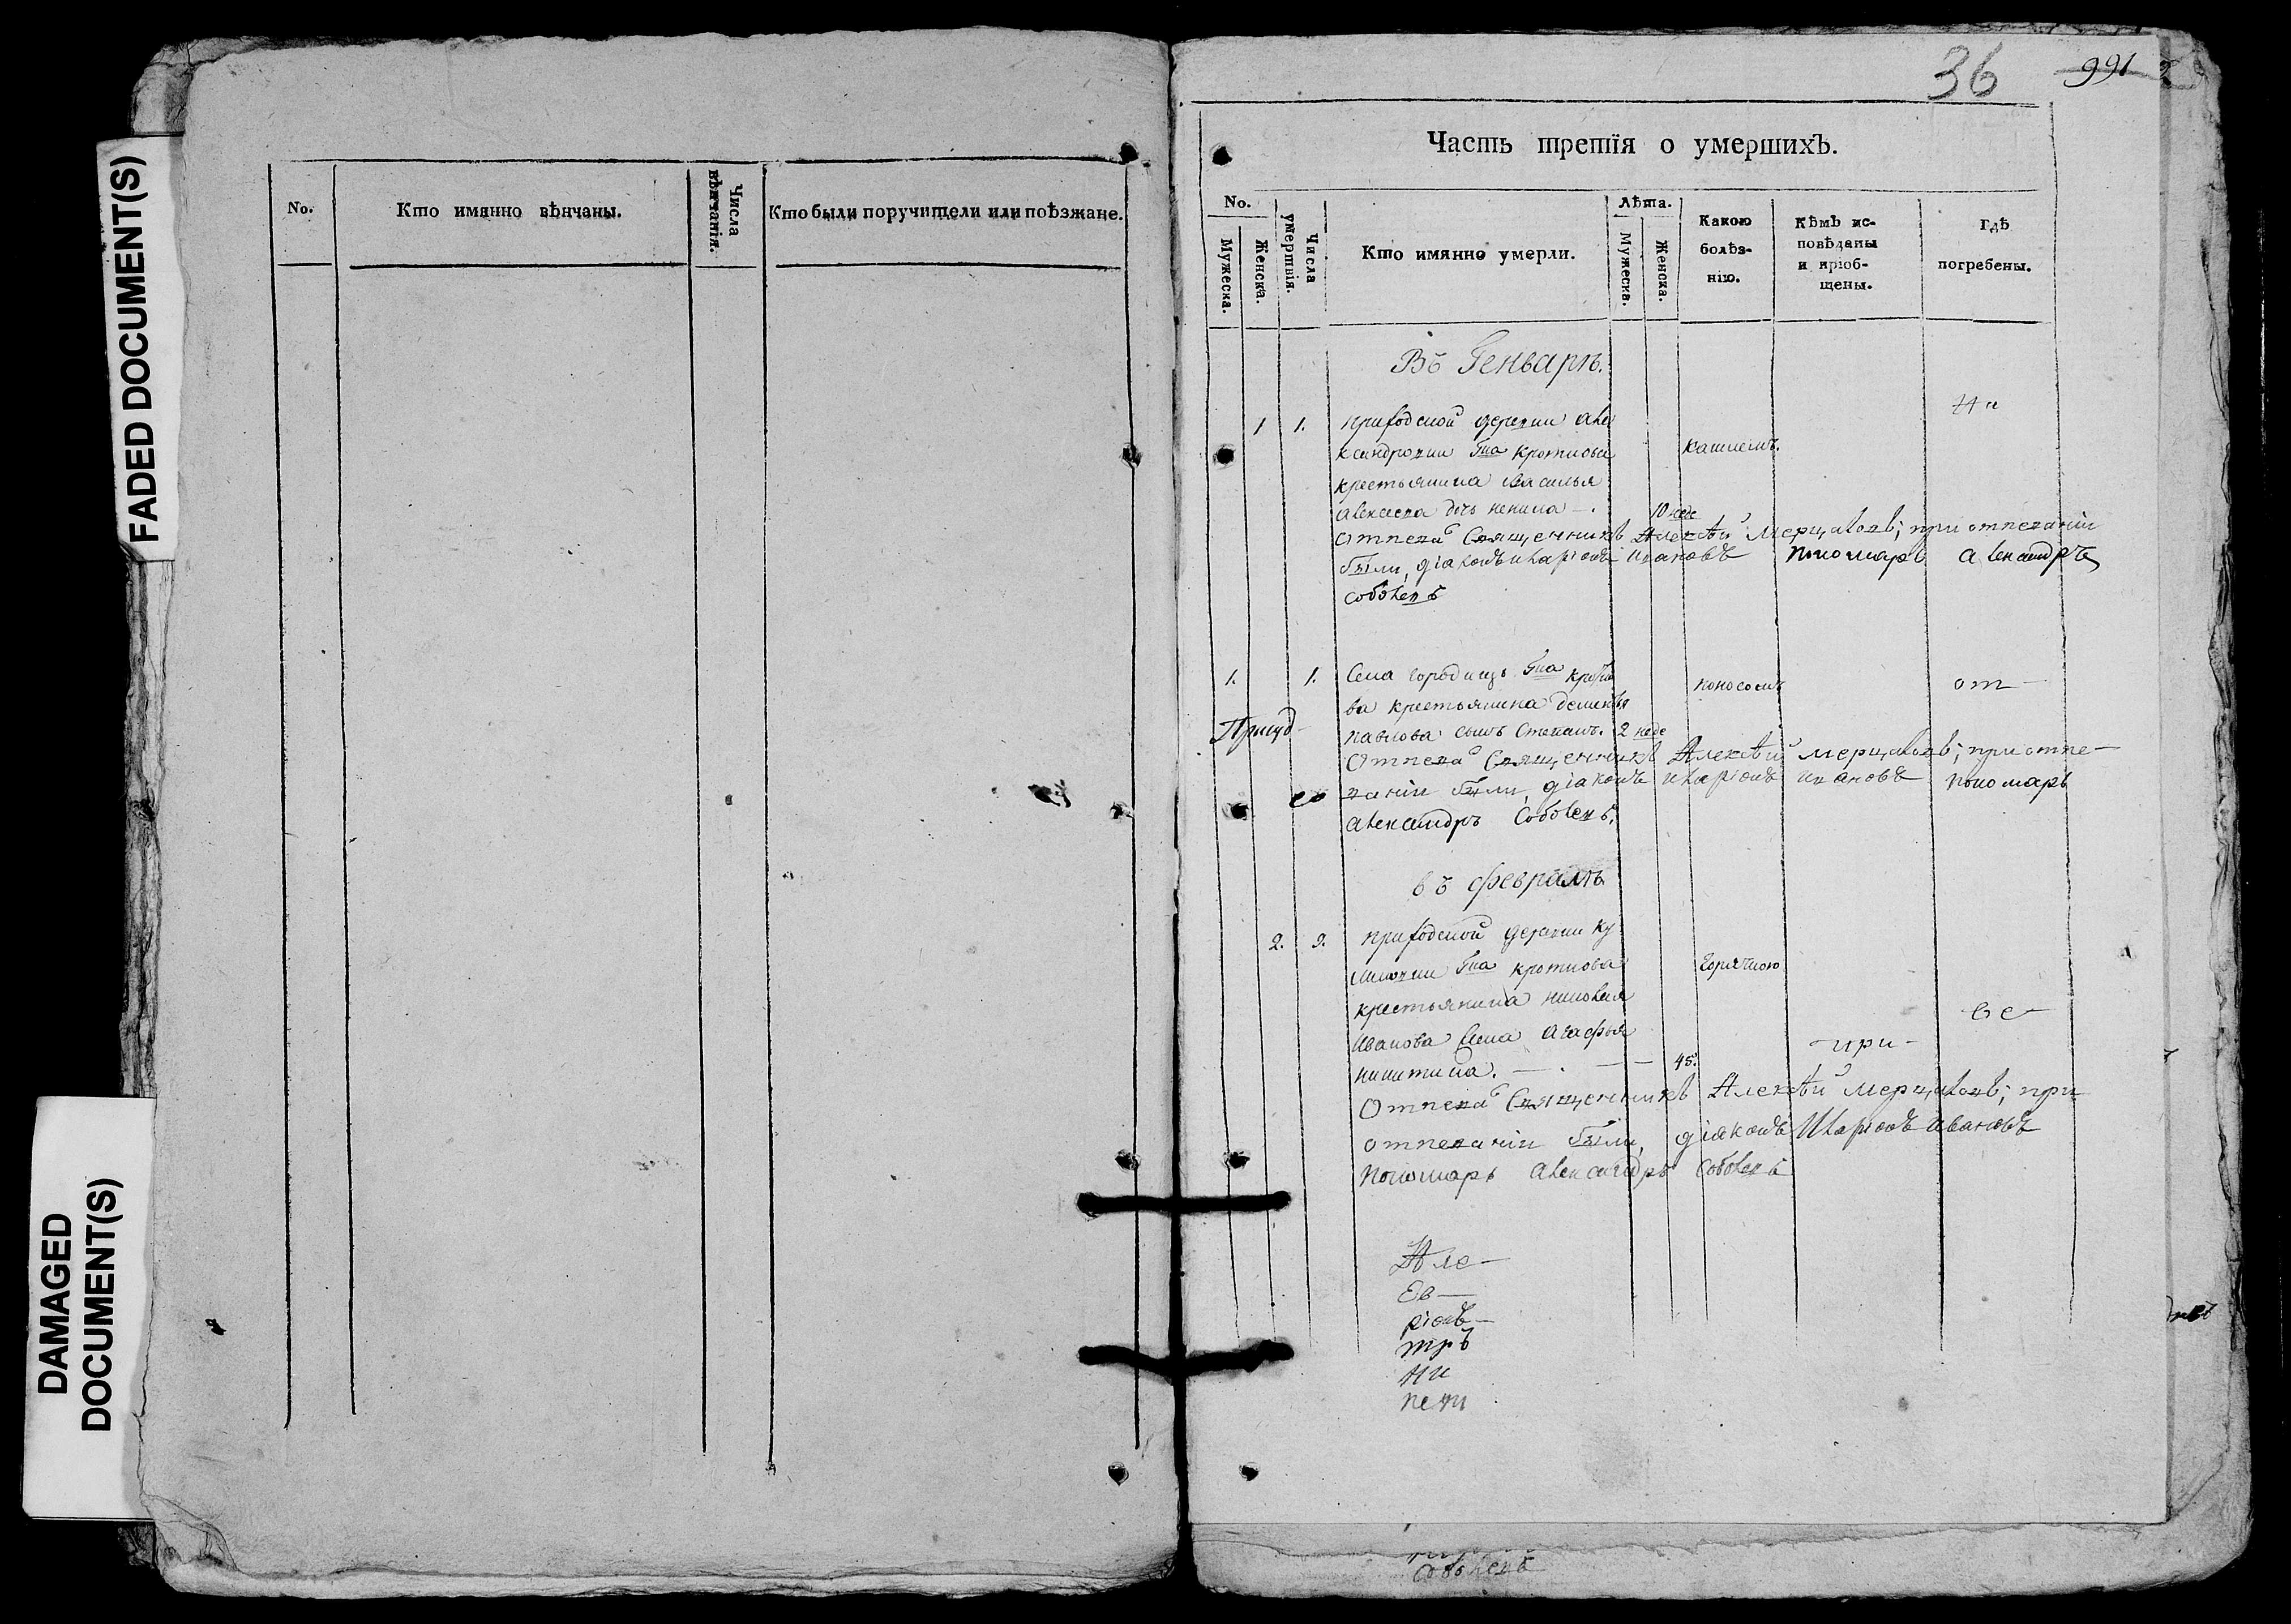 FADED DOCUMENT(S)
DAMAGED
DOCUMENT(S)
No.
Кто имянно вѣнчаны.
Числа
вѣнчанія.
Кто были поручители или поѣзжане.
36
991
Часть третія о умершихъ.
No.
Мужеска.
Женска.
Числа
умертвія.
Кто имянно умерли.
Лѣта.
Мужеска.
Женска.
Какою
болѣз-
нію.
Кѣмъ ис-
повѣданы
и пріоб-
щены.
Гдѣ
погребены.
Въ Генварѣ.
1 1. приходской деревни Але
ксандровки Гна Кроткова кашлемъ.
крестьянина Василья
Алексеева дчь 10 неде
отпевал Священникъ Алексѣй Мерцаловъ; при отпевании
были, діаконъ Иларіонъ Ивановъ пономарь Александръ
Соболевъ
1. 1. Села Городищъ Гна Кротко поносомъ от-
ва крестьянина
Павлова сынъ Степанъ. 2 неде
Отпевал Священникъ Алексѣй Мерцаловъ; при отпе-
ваніи были, діаконъ Иларіонъ Ивановъ пономарь
Александръ Соболевъ.
въ Февралѣ
2. 9. приходской деревни Ку
Гна Кроткова Горячкою
крестьянина Николая
Иванова жена Агафья ве-
Никитина. 45. при-
Отпевал Священникъ Алексѣй Мерцаловъ; при
отпеваніи были, діаконъ Иларіонъ Ивановъ
пономарь Александръ Соболевъ
Але-
Ев-
ріонъ-
тръ
ни
пети
Соболевъ